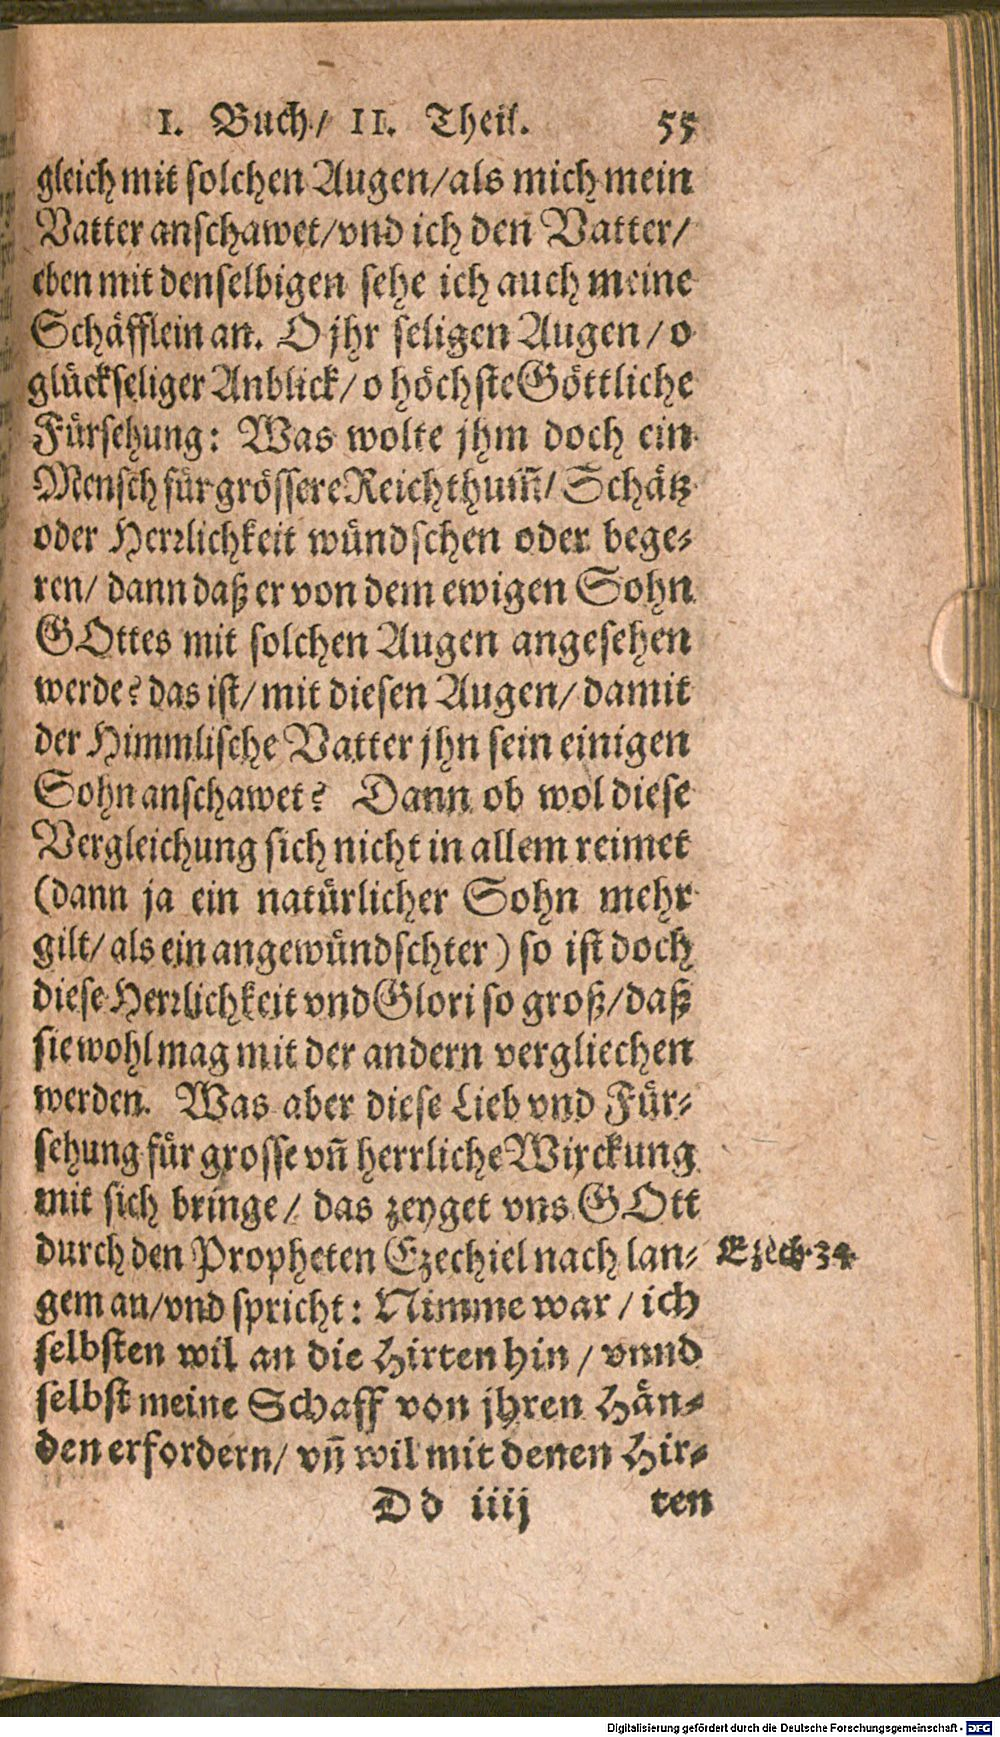 I. Buch/ II. Theil. 55
gleich mit solchen Augen/als mich mein
Vatter anschawet/vnd ich den Vatter/
eben mit denselbigen sehe ich auch meine
Schäfflein an. O jhr seligen Augen/o
glückseliger Anblick/o höchste Göttliche
Fürsehung: Was wolte jhm doch ein
Mensch für grössere Reichthum̃/Schätz
oder Herrlichkeit wündschen oder bege-
ren/ dann daß er von dem ewigen Sohn
GOttes mit solchen Augen angesehen
werde? das ist/mit diesen Augen/damit
der Himmlische Vatter jhn sein einigen
Sohn anschawet? Dann ob wol diese
Vergleichung sich nicht in allem reimet
(dann ja ein natürlicher Sohn mehr
gilt/als ein angewündschter) so ist doch
diese Herrlichkeit vnd Glori so groß/daß
sie wohl mag mit der andern vergliechen
werden. Was aber diese Lieb vnd Für-
sehung für grosse vñ herrliche Wirckung
mit sich bringe/ das zeyget vns GOtt
durch den Propheten Ezechiel nach lan- Ezech.34.
gem an/vnd spricht: Nimme war/ich
selbsten wil an die Hirten hin/vnnd
selbst meine Schaff von jhren Hän-
den erfordern/ vñ wil mit denen Hir-
Dd iiij ten
Digitalisierung gefördert durch die Deutsche Forschungsgemeinschaft - DFG